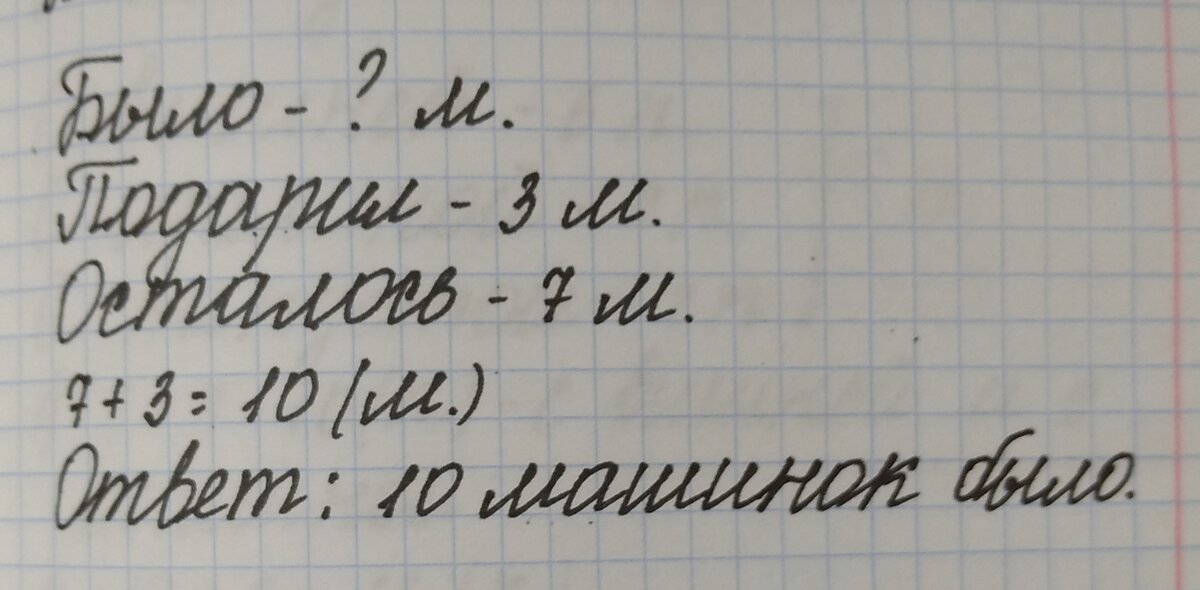 Было - ? м.
Подарил - 3 м.
Осталось - 7 м.
7 + 3 = 10 (м.)
Ответ: 10 машинок было.